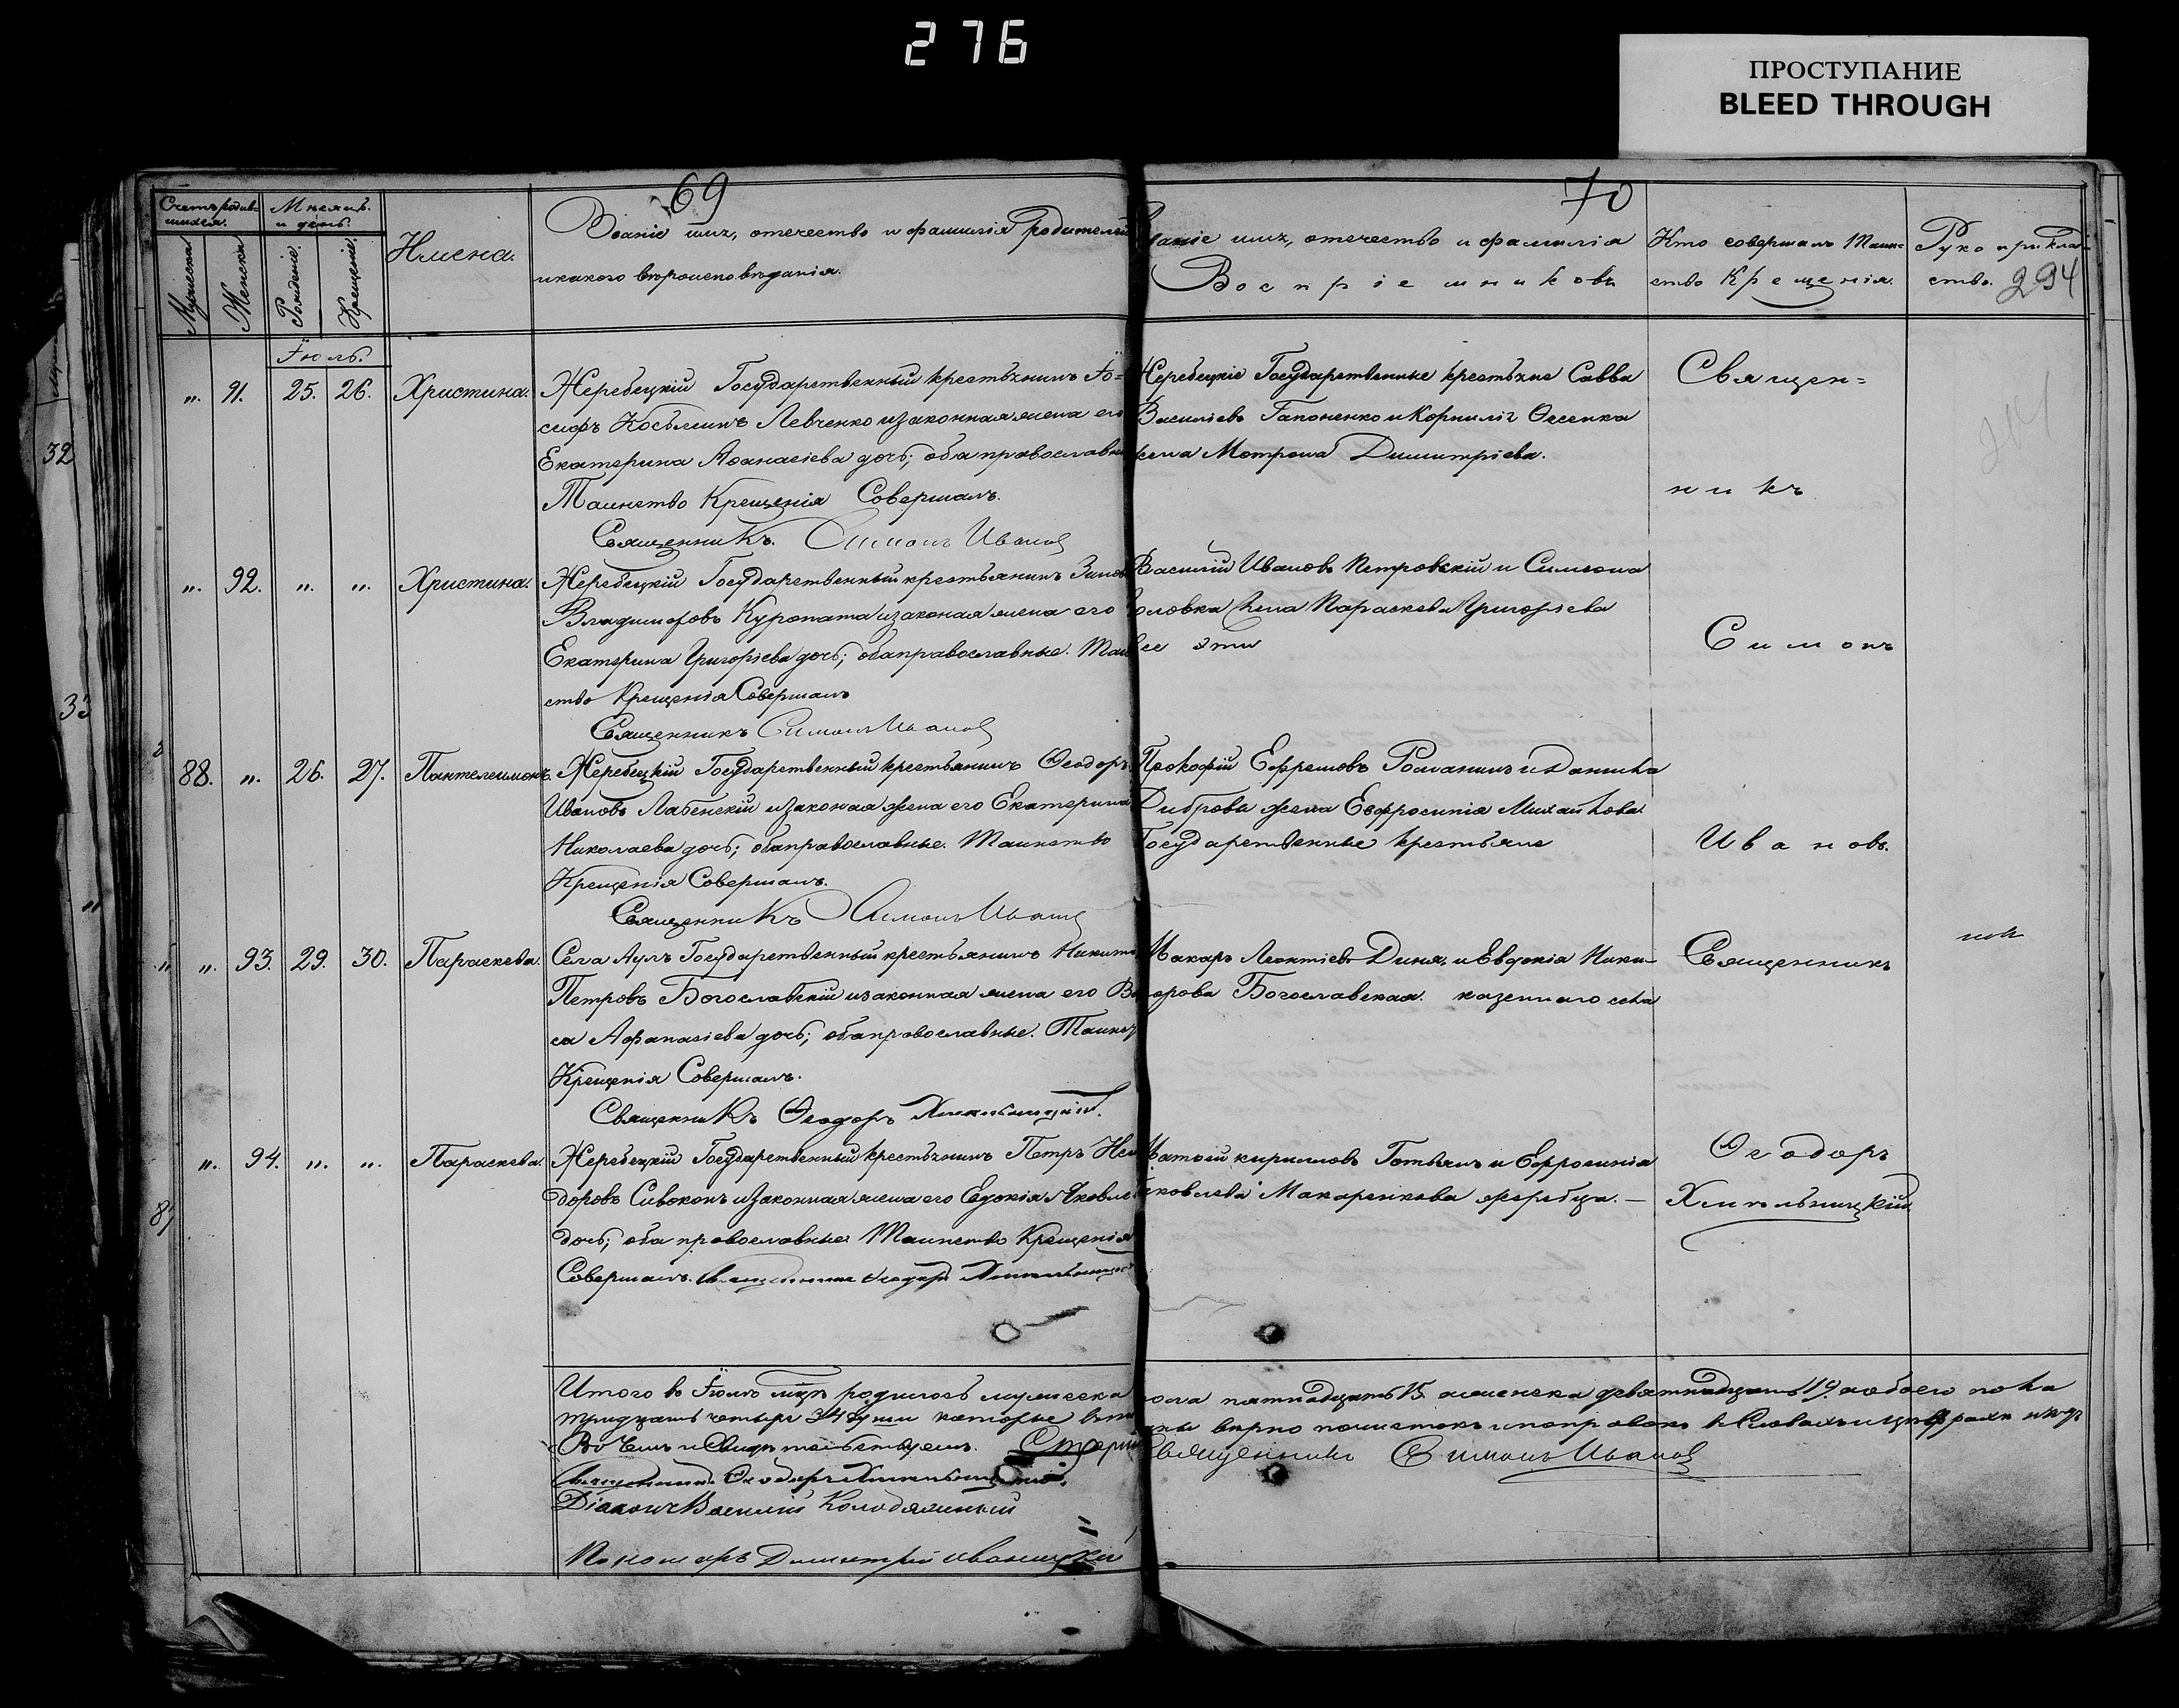 276
ПРОСТУПАНИЕ
BLEED THROUGH
69
70
294
Счетъ родив-
шихся.
Мѣсяцъ
и день.
Мужеска
Женска
Рожденіе.
Крещеніе.
Имена.
Званіе имя, отечество и фамилія родителей
и какого вѣроисповѣданія.
Званіе имя, отечество и фамилія
Воспріемниковъ
Кто совершалъ Таин-
ство Крещенія.
Рукоприклад-
ство.
Іюль.
„ 91. 25. 26. Христина.
Жеребецкій Государственный крестьянинъ Іо-
сифъ Косьминъ Левченко и законная жена его
Екатерина Аѳанасіева дочь; оба православны
Таинство Крещенія Совершалъ.
Священникъ. Симонъ Иванов
Жеребецкіе Государственные крестьяне Савва
Василіевъ Гапоненко и Корнилія Овсенка
жена Мотрона Димитріева.
Священ=
никъ
„ 92. „ „ Христина.
Жеребецкій Государственный крестьянинъ Зинов
Владиміровъ Куропата и законая жена его
Екатерина Григоріева дочь; оба православные. Таин
ство Крещенія Совершалъ
Священникъ Симонъ Иванов
Василій Ивановъ Петровскій и Симеона
оловка жена Параскева Григоріева
все эти
Симонъ
88. „ 26. 27. Пантелеимонъ.
Жеребецкій Государственный крестьянинъ Ѳеодоръ
Ивановъ Лабенскій и законая жена его Екатерина
Николаева дочь; оба православные. Таинство
Крещенія Совершалъ.
Священникъ Симонъ Иванов
Прокофій Ефремовъ Романинъ и Данила
Диброва жена Евфросинія Михайлова
Государственные крестьяне
Ивановъ.
„ 93. 29. 30. Параскева.
Села Аулъ Государственный крестьянинъ Никита
Петровъ Богославскій и законная жена его Ва
са Афанасіева дочь; оба православные. Таинст
Крещенія Совершалъ.
Священникъ Ѳеодоръ Хмельницкій.
Макаръ Леонтіевъ Диня, и Евдокія Ники-
форова Богославская. казеннаго села
Священникъ
„ 94. „ „ Параскева.
Жеребецкій Государственный крестьянинъ Петръ
доровъ Сивоконъ и законная жена его Евдокія Яковле
дочь; оба православные Таинство Крещенія
Совершалъ. Священникъ Ѳеодоръ Хмельницкій
Матѳій кириловъ Готвянъ и Ефросинія
яковлева Макаренкова жеребца.—
Ѳеодоръ
Хмельницкій
32
33
Итого въ Іюлѣ мцѣ родилось мужеска пола пятнадцать 15. женска девятнадцать 19. а обоего пола
тридцать четыре 34 души которые вѣрно
Въ чемъ и Свидѣтельствуемъ. Старшій Священникъ Симонъ Иванов
Священникъ Ѳеодоръ Хмельницкій.
Діаконъ Василій Колодяжный
Пономарь Димитрій Иваницкій